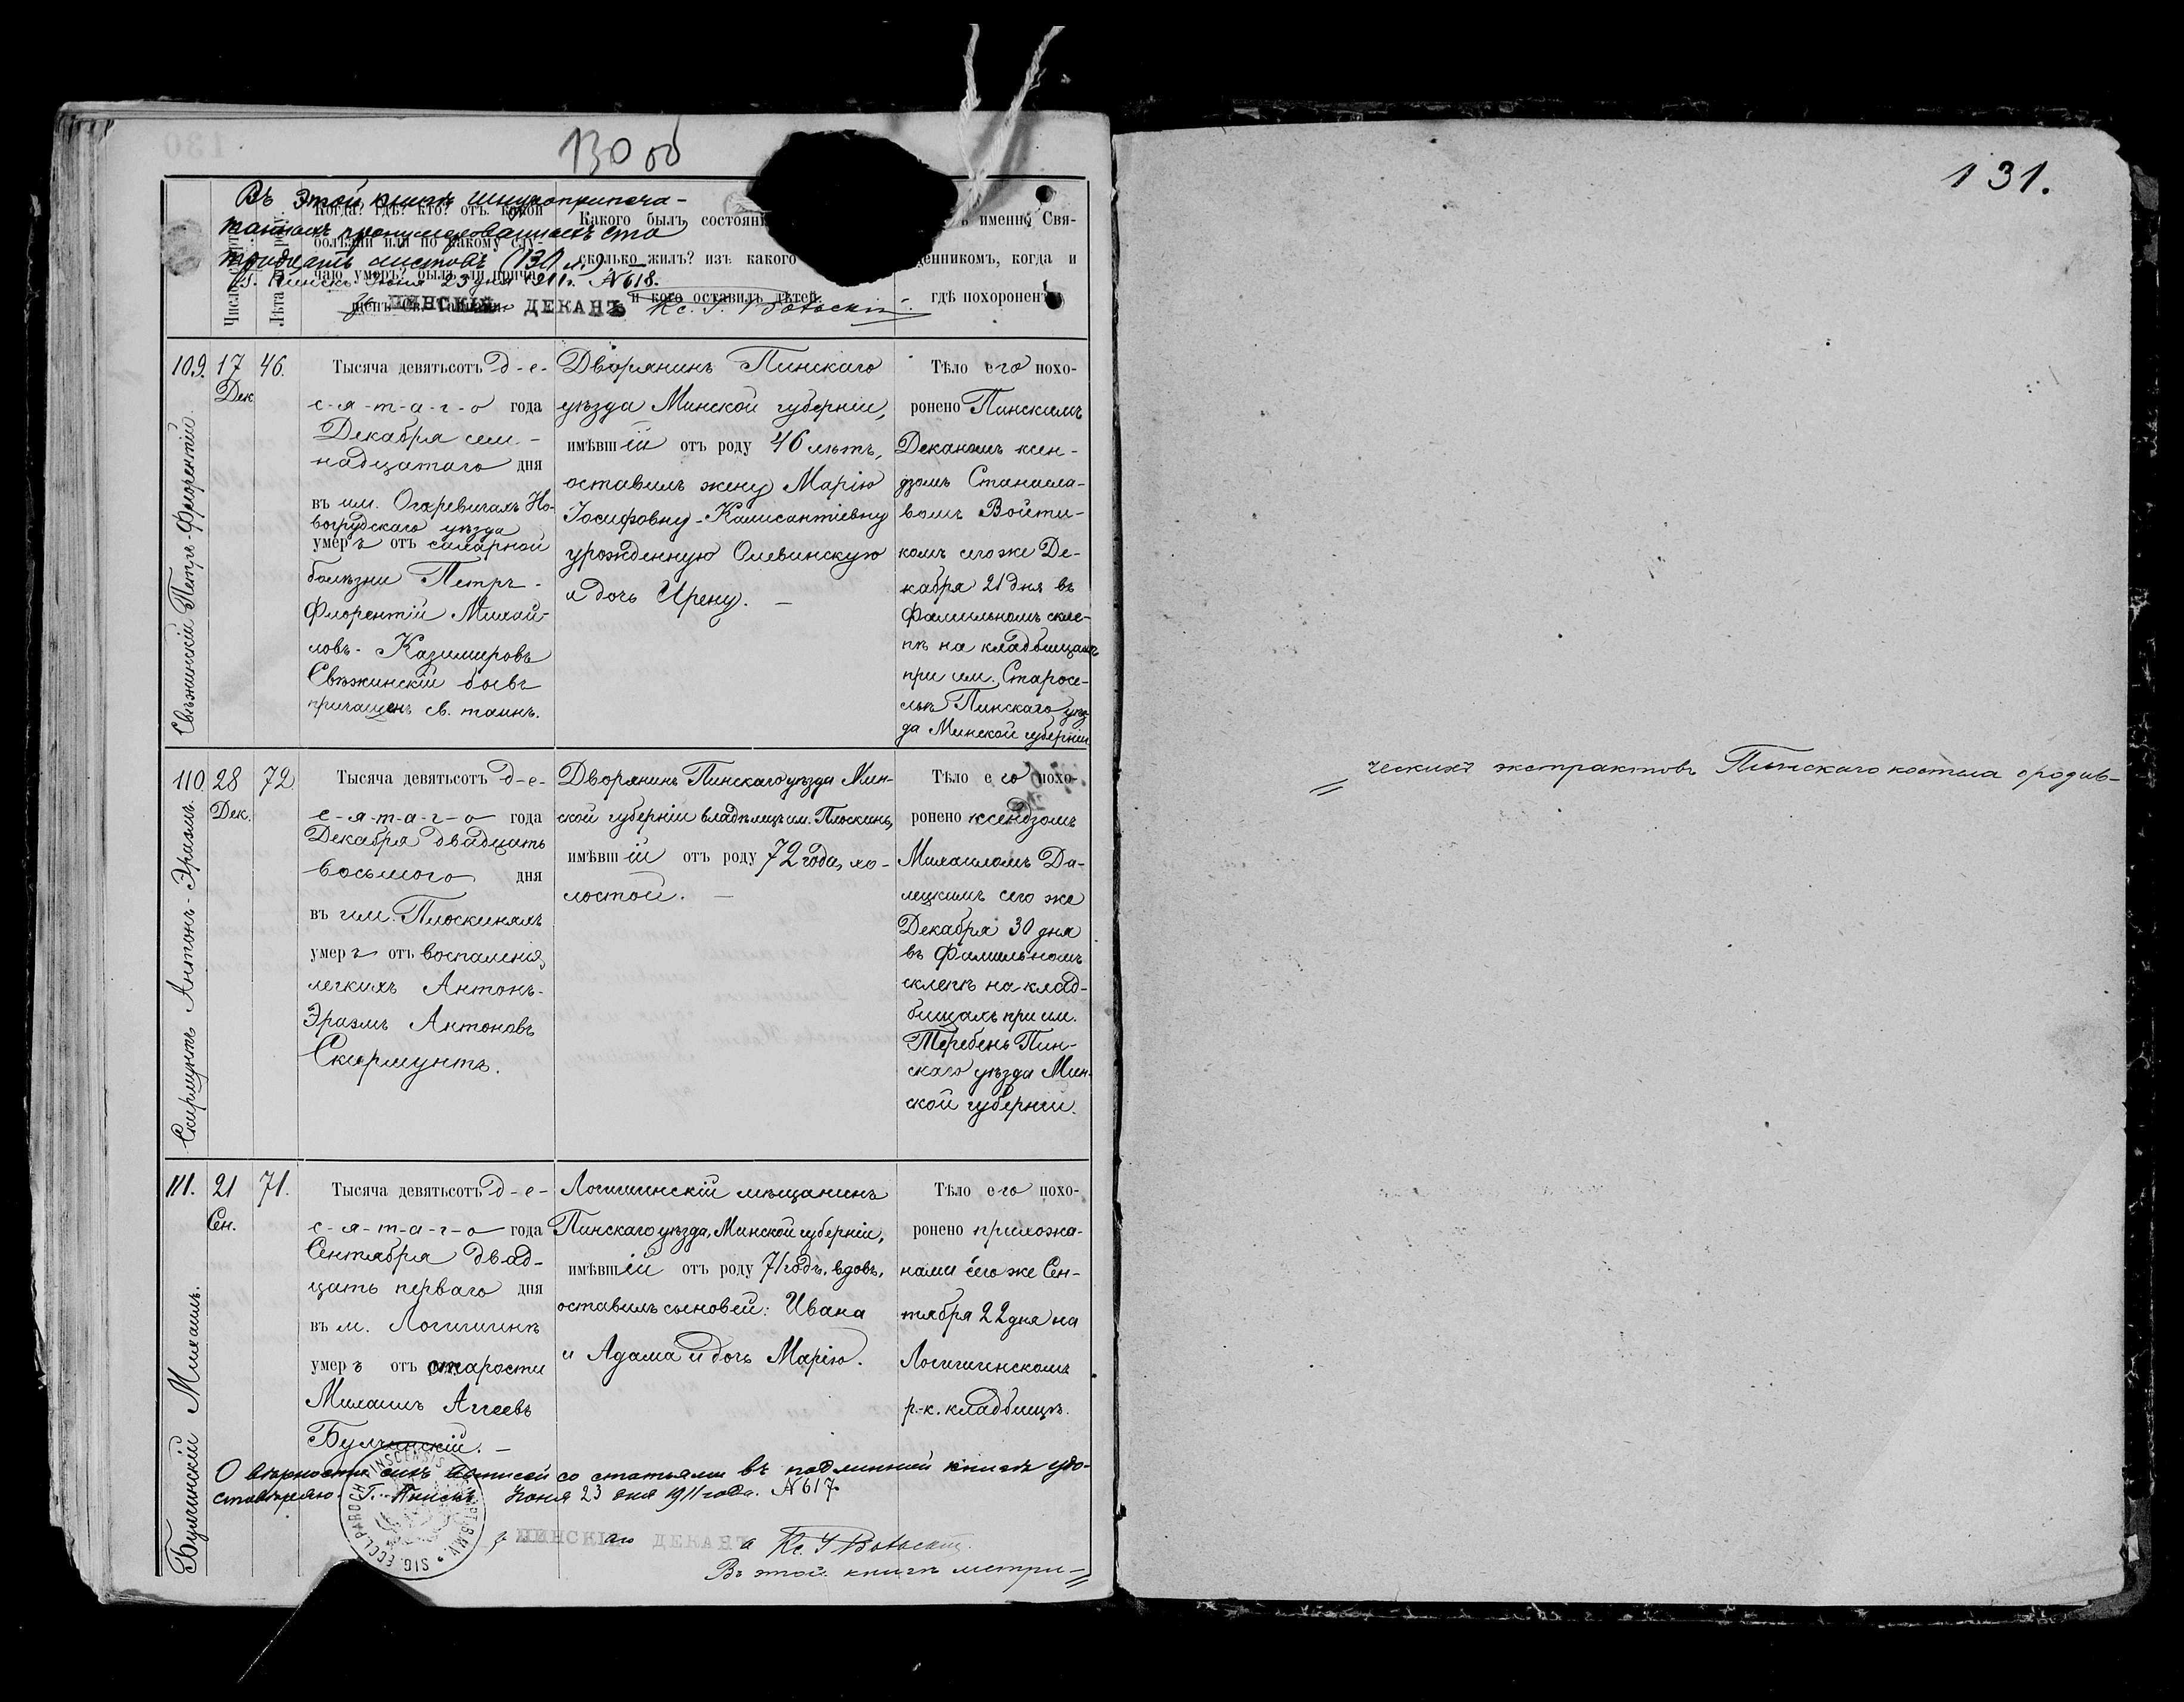 130 об
Въ этой книгѣ шнуроприпеча-
танныхъ пронумерованныхъ сто
тридцать листовъ (130 л.)
Г. Пинскъ Іюня 23 дня 1911 г. №618.
ПИНСКІЙ ДЕКАНЪ
Когда? гдѣ? кто? отъ какой
болѣзни или по какому слу-
чаю умеръ? былъ ли прича-
щенъ Св.
Какого былъ состоян
сколько жилъ? изъ какого
и кого оставилъ дѣтей.
именно Свя-
щенникомъ, когда и
гдѣ похороненъ
109.
17
Дек.
46.
Свѣжинскій Петръ-Флорентій
Тысяча девятьсотъ д-е-
с-я-т-а-г-о года
Декабря сем-
надцатаго дня
въ им. Огаревичахъ Но-
вогрудскаго уѣзда
умеръ отъ сахарной
болѣзни Петръ-
Флорентій Михай-
ловъ-Казимировъ
Свѣжинскій бывъ
причащенъ св. таинъ.
Дворянинъ Пинскаго
уѣзда Минской губерніи,
имѣвшій отъ роду 46 лѣтъ,
оставилъ жену Марію
Іосифовну-Калисантіевну
урожденную Олевинскую
и дочь Ирену. —
Тѣло его похо-
ронено Пинскимъ
Деканомъ ксен-
дзомъ Станисла-
вомъ Войти-
комъ сего же Де-
кабря 21 дня въ
фамильномъ скле-
пѣ на кладбищахъ
при им. Старосе-
льѣ Пинскаго уѣз-
да Минской губерніи
110
28
Дек.
72.
Скирмунтъ Антонъ-Эразмъ.
Тысяча девятьсотъ д-е-
с-я-т-а-г-о года
Декабря двадцать
восьмого дня
въ им. Плоскиняхъ
умеръ отъ воспаленія
легкихъ Антонъ-
Эразмъ Антоновъ
Скирмунтъ.
Дворянинъ Пинскаго уѣзда Мин-
ской губерніи владѣлецъ им. Плоскинь,
имѣвшій отъ роду 72 года, хо-
лостой. —
Тѣло его похо-
ронено ксендзомъ
Михаиломъ Да-
лецкимъ сего же
Декабря 30 дня
въ фамильномъ
склепѣ на клад-
бищахъ при им.
Теребень Пин-
скаго уѣзда Мин-
ской губерніи.
111.
21
Сен.
71.
Булчинскій Михаилъ.
Тысяча девятьсотъ д-е-
с-я-т-а-г-о года
Сентября двад-
цать перваго дня
въ м. Логишинѣ
умеръ отъ старости
Михаилъ Аггеевъ
Булчинскій. —
Логишинскій мѣщанинъ
Пинскаго уѣзда, Минской губерніи,
имѣвшій отъ роду 71 годъ, вдовъ,
оставилъ сыновей: Ивана
и Адама и дочь Марію.
Тѣло его похо-
ронено прихожа-
нами сего же Сен-
тября 22 дня на
Логишинскомъ
р.-к. кладбищѣ.
О вѣрности сихъ записей со статьями въ подлинной книгѣ удо-
стовѣряю. Г. Пинскъ Іюня 23 дня 1911 года. №617.
ПИНСКІЙ аго ДЕКАНЪ а
Въ этой книгѣ метри-
131.
ческихъ экстрактовъ Пинскаго костела о родив-